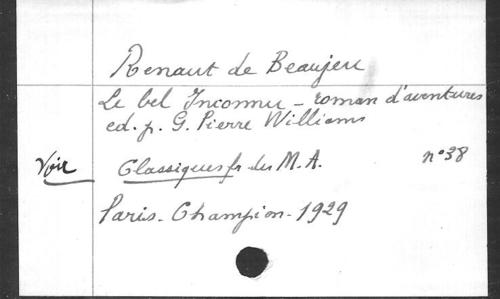 Renaut de Beaujeu
Le bel Inconnu - roman d'aventures
ed. p. G. Pierre Williams
Voir Classiques fr. des M. A. n° 38
Paris - Champion - 1929